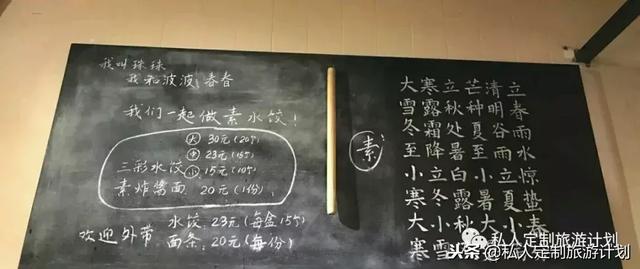 我叫珠珠
我和波波、春春
我们一起做素水饺！
大 30元(20个)
中 23元(15个)
三彩水饺 小 15元(10个)
素炸酱面 20元(1份)
水饺:23元(每盒15个)
欢迎外带 面条:20元(每份)
素
立春雨水惊蛰春
清明谷雨立夏小
芒种夏至小暑大
立秋处暑白露秋
寒露霜降立冬小雪
大雪冬至小寒大寒
私人定制旅游计划
头条 @私人定制旅游计划